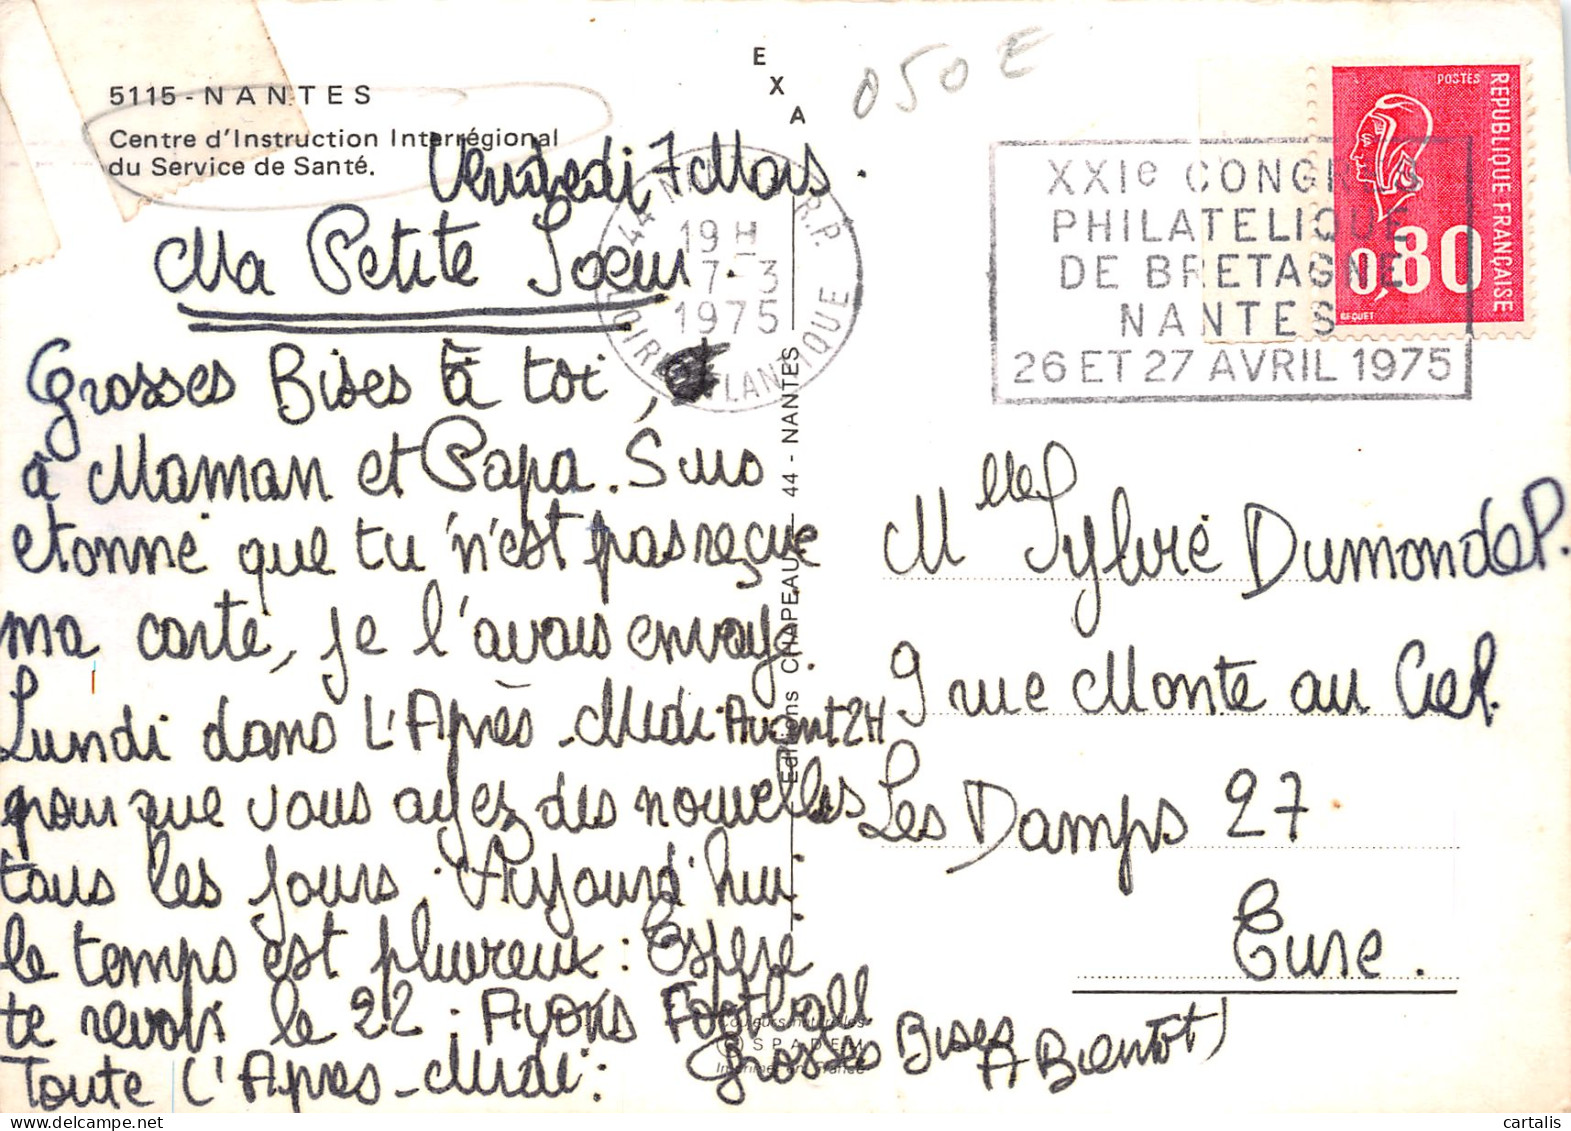 5115 - NANTES
Centre d'Instruction Interrégional
du Service de Santé.
EXA
050 E
Vendredi 7 Mars.
Ma Petite Soeur
Grosses Bises à toi,
à Maman et Papa. Suis
etonné que tu n'est pas reçue
ma carte, je l'avais envoyé
Lundi dans L'Après-Midi Avant 2H
pour que vous ayez des nouvelles
tous les jours. Aujourd'hui
le temps est pluvieux : Espère
te revoir le 22. Ayons Football
Toute l'Apres-Midi :
Grosses Bises
A Bientot)
44 NANTES R.P.
19 H
7-3
1975
LOIRE ATLANTIQUE
XXIe CONGRES
PHILATELIQUE
DE BRETAGNE
NANTES
26 ET 27 AVRIL 1975
POSTES
REPUBLIQUE FRANÇAISE
0,80
BEQUET
Editions CHAPEAU - 44 - NANTES
Couleurs naturelles
SPADEM
Imprimé en France
Melle Sylvie Dumondel.
9 rue Monte au Ciel.
Les Damps 27
Eure.
cartalis
www.delcampe.net